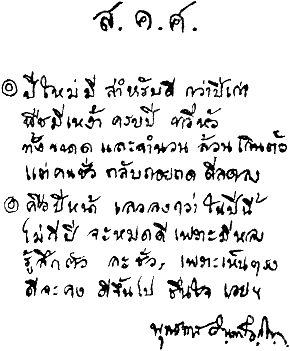 ส.ค.ส.
๏ ปีใหม่มี สำหรับดี กว่าปีเก่า
พืชมีเหง้า ครบปี ทวีหัว
ทั้งขนาด และจำนวน ล้วนเกินตัว
แต่คนชั่ว กลับถอยถด ดีลดลง
๏ คือปีหน้า เลวลงกว่า ในปีนี้
ไม่กี่ปี จะหมดดี เพราะมีหลง
รู้สึกตัว ละชั่ว, เพราะเห็นตรง
ดีจะคง ดีขึ้นไป ชื่นใจ เอยฯ
พุทธทาส อินทปัญโญ